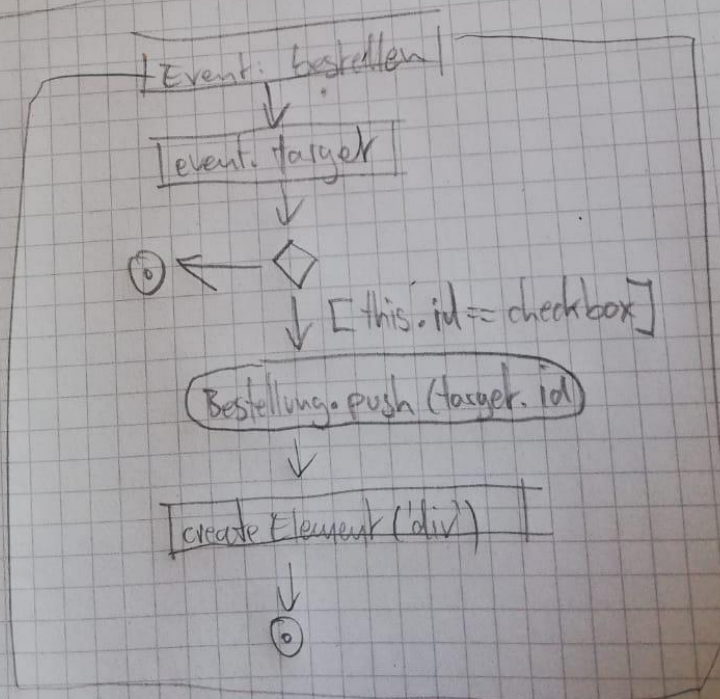 Event: bestellen
event. target
[this.id == checkbox]
Bestellung.push (target.id)
create Element ('div')